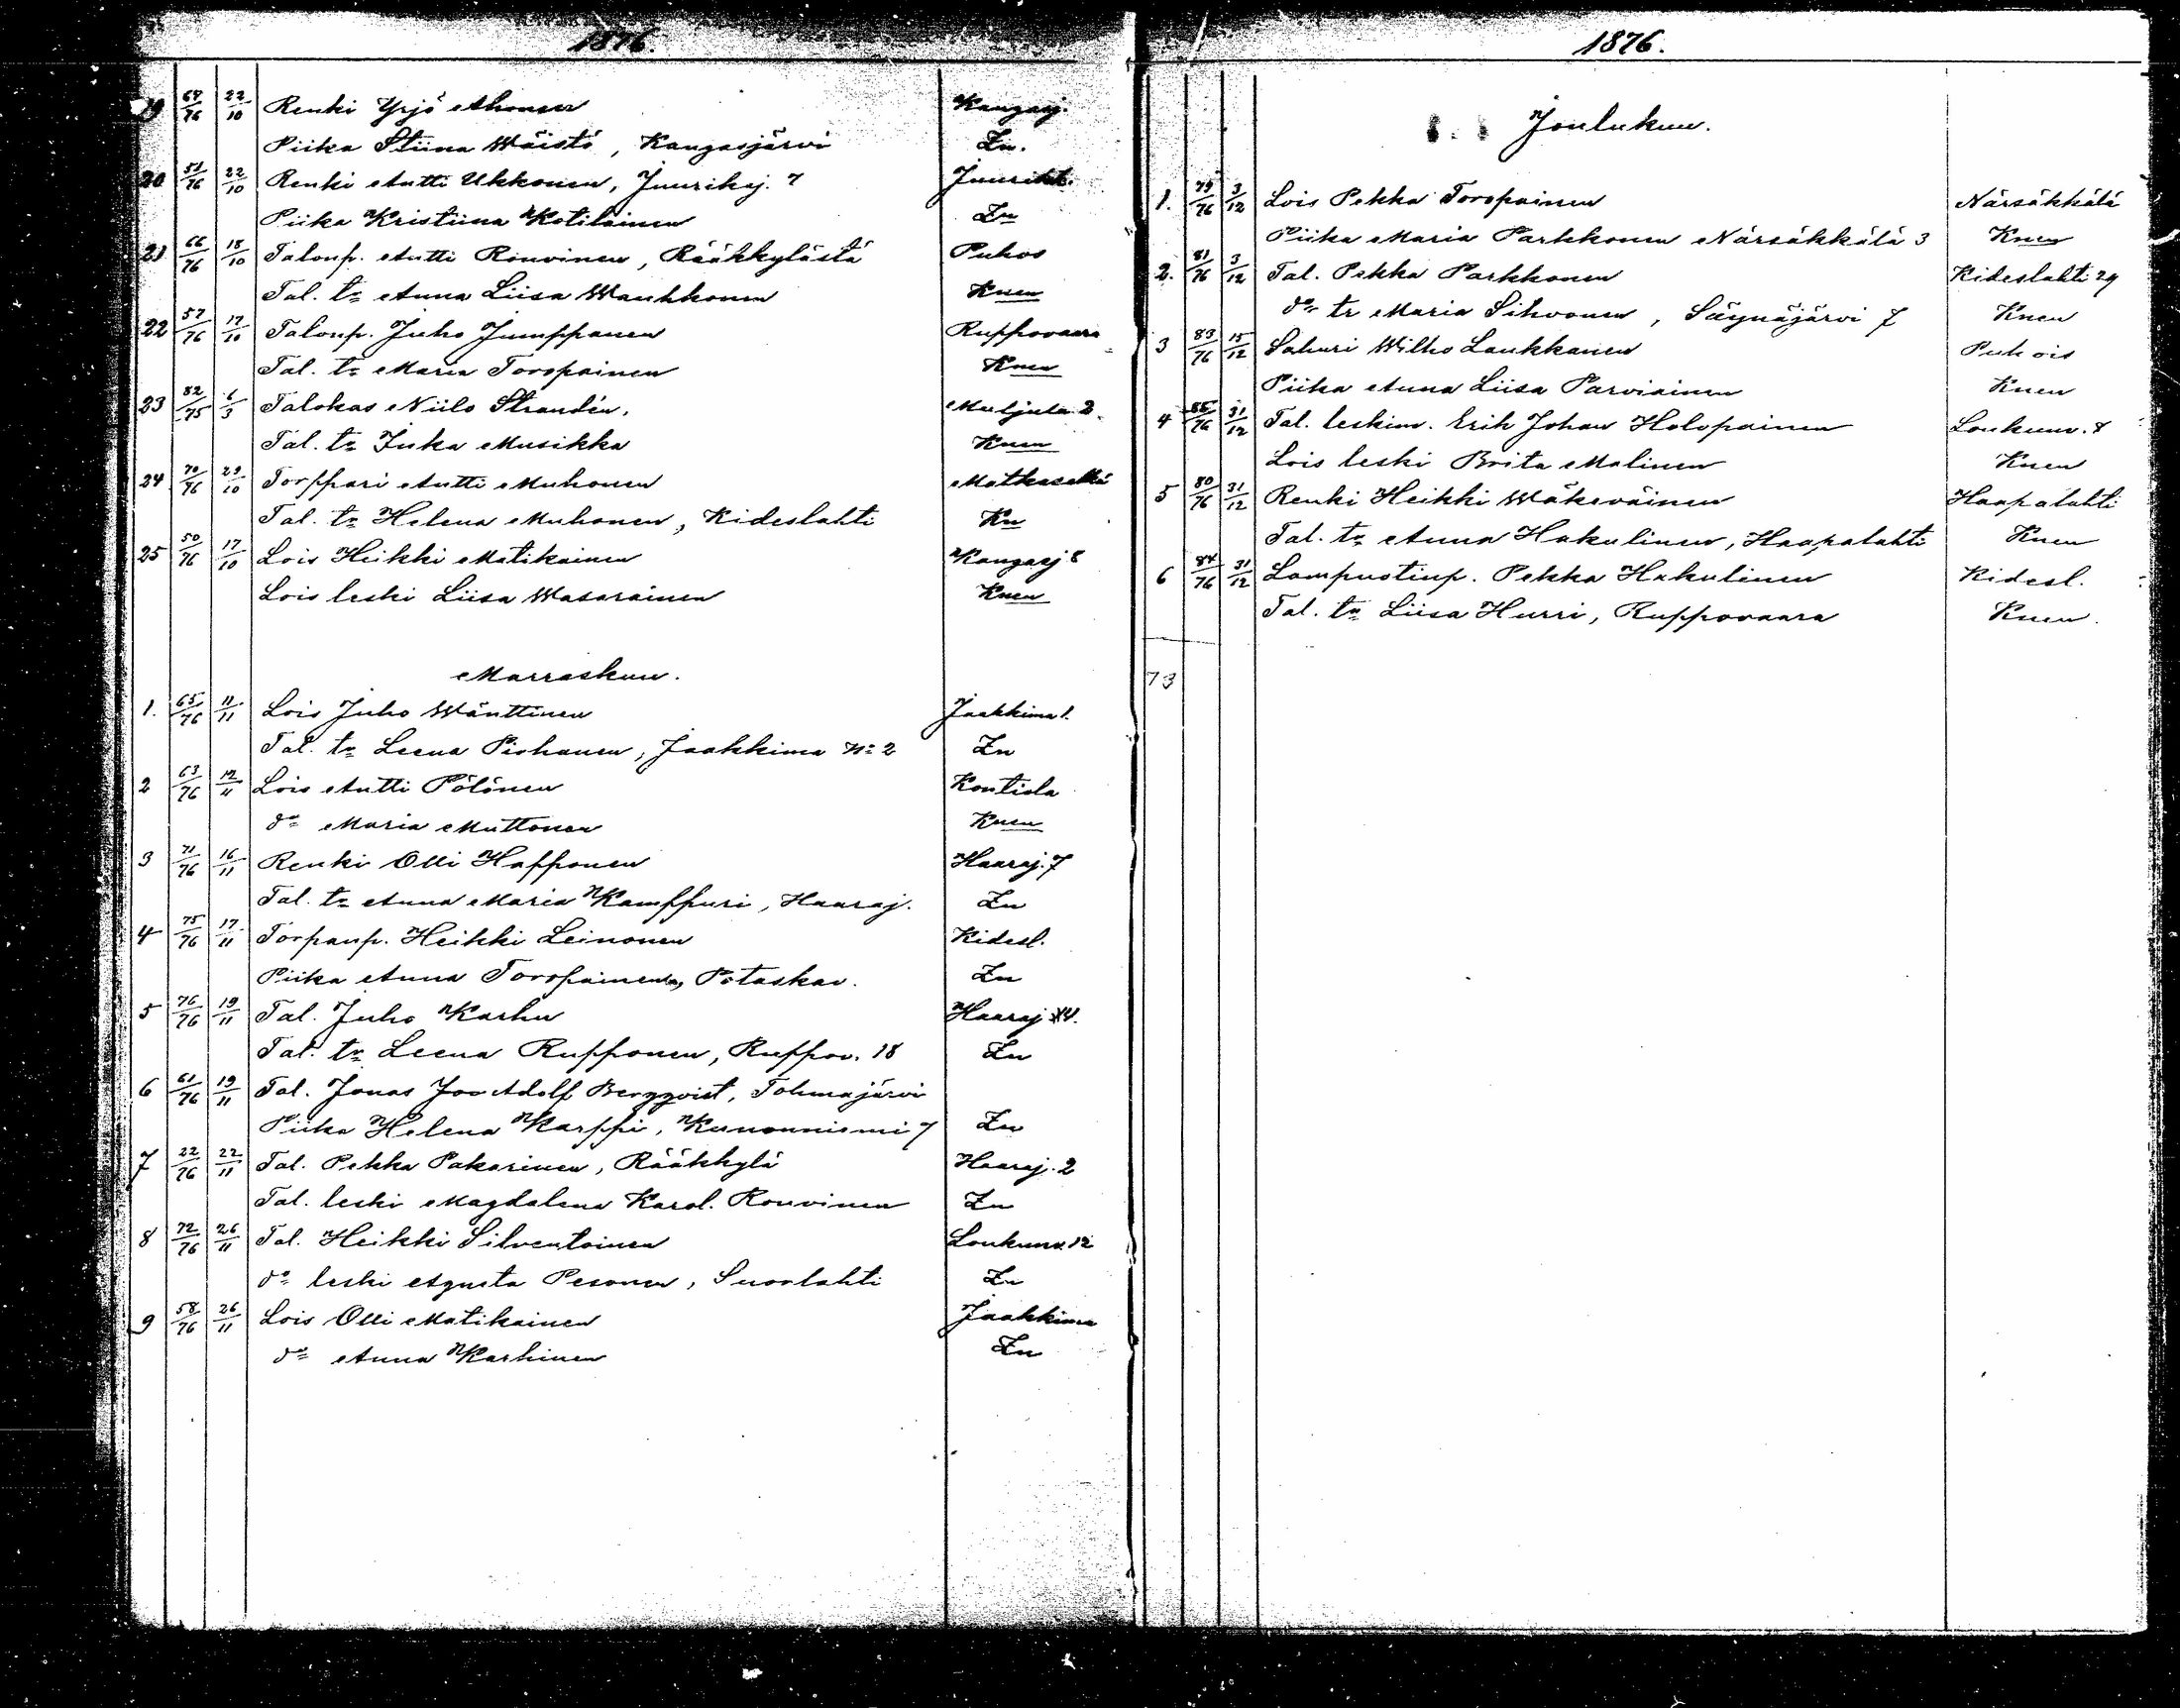 1876.
19 67/76 22/10 Renki Yrjö Ahonen Kangasj.
Piika Stiina Wäistö, Kangasjärvi Zn.
20 51/76 22/10 Renki Antti Ukkonen, Juurikej. 7 Juurikk.
Piika Kristiina Kotilainen Zn
21 66/76 18/10 Talonp. Antti Rouvinen, Rääkkylästä Puhos
Tal. tr Anna Liisa Wauhkonen Knen
22 57/76 17/10 Talonp. Juho Jumppanen Ruppovaara
Tal. tr Maria Toropainen Knen
23 82/75 6/3 Talokas Niilo Strandén. Muljula 2.
Tal. tr Inka Musikka Knen
24 70/76 29/10 Torppari Antti Muhonen Matkaselkä
Tal. tr Helena Muhonen, Kideslahti Kn
25 50/76 17/10 Lois Heikki Matikainen Kangasj 8
Lois leski Liisa Wasarainen Knen
Marraskuu.
1. 65/76 11/11 Lois Juho Wänttinen Jaakkima 1.
Tal. tr Leena Pirhonen, Jaakkima No 2 Zn
2 63/76 12/11 Lois Antti Pölönen Kontiola
do Maria Muttonen Knen
3 71/76 16/11 Renki Olli Happonen Haaraj. 7
Tal. tr Anna Maria Kamppuri, Haaraj. Zn
4 75/76 17/11 Torpanp. Heikki Leinonen Kidesl.
Piika Anna Toropainen, Potaskav. Zn
5 76/76 19/11 Tal. Juho Karhu Haaraj 14.
Tal. tr Leena Rupponen, Ruppov. 18 Zn
6 61/76 19/11 Tal. Jonas Joo Adolf Bergqvist, Tohmajärvi
Piika Helena Karppi, Kunonniemi 7 Zn
7 22/76 22/11 Tal. Pekka Pakarinen, Rääkkylä Haaraj. 2
Tal. leski Magdalena Karol. Rouvinen Zn
8 72/76 26/11 Tal. Heikki Silventoinen Loukunv. 12
do leski Agusta Pesonen, Suorlahti Zn
9 58/76 26/11 Lois Olli Matikainen Jaakkima
do Anna Karhinen Zn
1876.
Joulukuu.
1. 79/76 3/12 Lois Pekka Toropainen Närsäkkälä
Piika Maria Parkkonen Närsäkkälä 3 Knen
2. 81/76 3/12 Tal. Pekka Parkkonen Kideslahti 29
do tr Maria Sihvonen, Säynäjärvi 7 Knen
3 83/76 15/12 Sahuri Wilho Laukkanen Puhois
Piika Anna Liisa Parviainen Knen
4 85/76 31/12 Tal. leskim. Erik Johan Holopainen Loukunv. 8
Lois leski Brita Malinen Knen
5 80/76 31/12 Renki Heikki Wäkeväinen Haapalahti
Tal. tr Anna Hakulinen, Haapalahti Knen
6 84/76 31/12 Lampuotinp. Pekka Hakulinen Kidesl.
Tal. tr Liisa Hurri, Ruppovaara Knen.
73